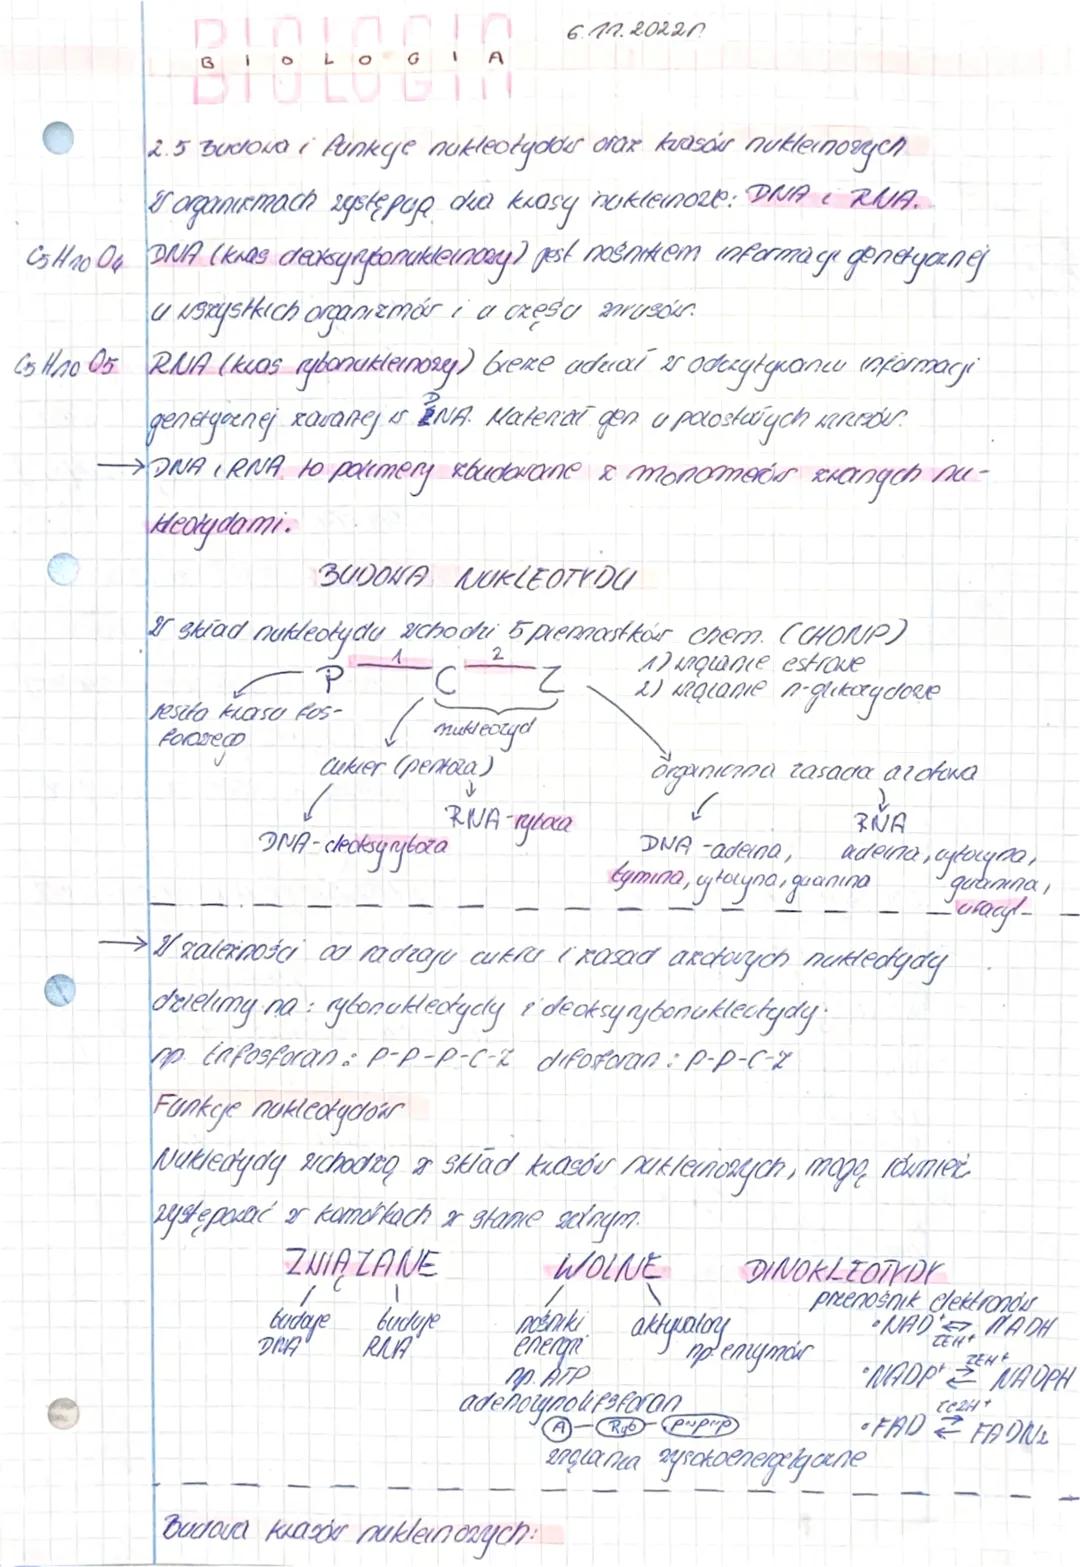 BIOLOGIA
B I O L O G I A
6.11.2022r.
2.5 Budowa i funkcje nukleotydów oraz kwasów nukleinowych
W organizmach występują dwa kwasy nukleinowe: DNA i RNA.
C5H10O4 DNA (kwas deoksyrybonukleinowy) jest nośnikiem informacji genetycznej
u wszystkich organizmów i u części wirusów.
C5H10O5 RNA (kwas rybonukleinowy) bierze udział w odczytywaniu informacji
genetycznej zawartej w DNA. Materiał gen u pozostałych wirusów.
→ DNA i RNA to polimery zbudowane z monomerów zwanych nu-
kleotydami.
BUDOWA NUKLEOTYDU
W skład nukleotydu wchodzi 5 pierwiastków chem. (CHONP)
P 1 C 2 Z 1) wiązanie estrowe
2) wiązanie n-glikozydowe
reszta kwasu fos-
forowego
nukleozyd
cukier (pentoza)
organiczna zasada azotowa
DNA - deoksyryboza
RNA - ryboza
DNA - adenina,
tymina, cytozyna, guanina
RNA
adenina, cytozyna,
guanina,
uracyl
→ W zależności od rodzaju cukru i zasad azotowych nukleotydy
dzielimy na: rybonukleotydy i deoksyrybonukleotydy.
np. trifosforan: P-P-P-C-Z difosforan: P-P-C-Z
Funkcje nukleotydów
Nukleotydy wchodzą w skład kwasów nukleinowych, mogą również
występować w komórkach w stanie wolnym.
ZWIĄZANE WOLNE DINUKLEOTYDY
buduje
DNA
buduje
RNA
nośniki
energii
np. ATP
adenozynotrifosforan
A - Ryb - P~P~P
wiązania wysokoenergetyczne
aktywatory
np enzymów
przenośnik elektronów
• NAD+ ⇄ NADH
2eH+
• NADP+ ⇄ NADPH
2eH+
• FAD ⇄ FADH2
2e2H+
Budowa kwasów nukleinowych: